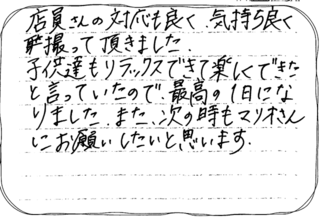 店員さんの対応も良く、気持ち良く
撮って頂きました.
子供達もリラックスできて楽しくできた
と言っていたので、最高の1日にな
りました. また、次の時もマリオさん
にお願いしたいと思います.